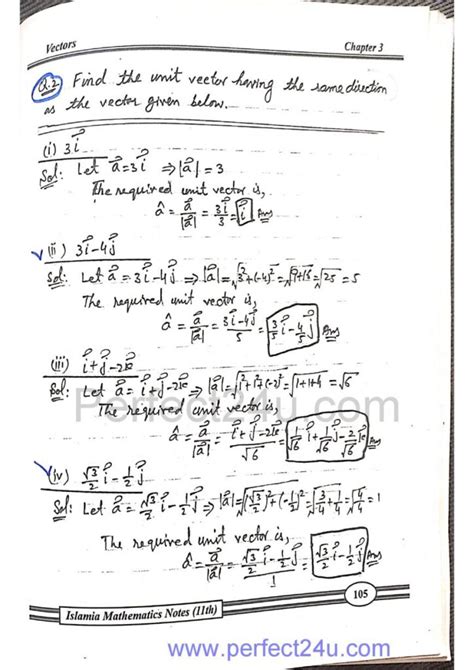 Vectors Chapter 3
Q.2 Find the unit vector having the same direction
as the vector given below.
(i) 3î
Sol: Let a⃗=3î ⇒|a⃗|=3
The required unit vector is,
â = a⃗/|a⃗| = 3î/3 = î Ans
(ii) 3î-4ĵ
Sol: Let a⃗ = 3î-4ĵ ⇒|a⃗|=√3²+(-4)² =√9+16=√25 =5
The required unit vector is,
â = a⃗/|a⃗| = 3î-4ĵ/5 = 3/5 î - 4/5 ĵ Ans
(iii) î+ĵ-2k̂
Sol: Let a⃗ = î+ĵ-2k̂ ⇒|a⃗|=√1²+1²+(-2)² =√1+1+4 =√6
Perfect24u.com
The required unit vector is,
â = a⃗/|a⃗| = î+ĵ-2k̂/√6 = 1/√6 î + 1/√6 ĵ - 2/√6 k̂ Ans
(iv) √3/2 î - 1/2 ĵ
Sol: Let a⃗ = √3/2 î - 1/2 ĵ ⇒|a⃗|=√(√3/2)²+(-1/2)² =√3/4+1/4 =√4/4 =1
The required unit vector is,
â = a⃗/|a⃗| = √3/2 î - 1/2 ĵ/1 = √3/2 î - 1/2 ĵ Ans
105
Islamia Mathematics Notes (11th)
www.perfect24u.com